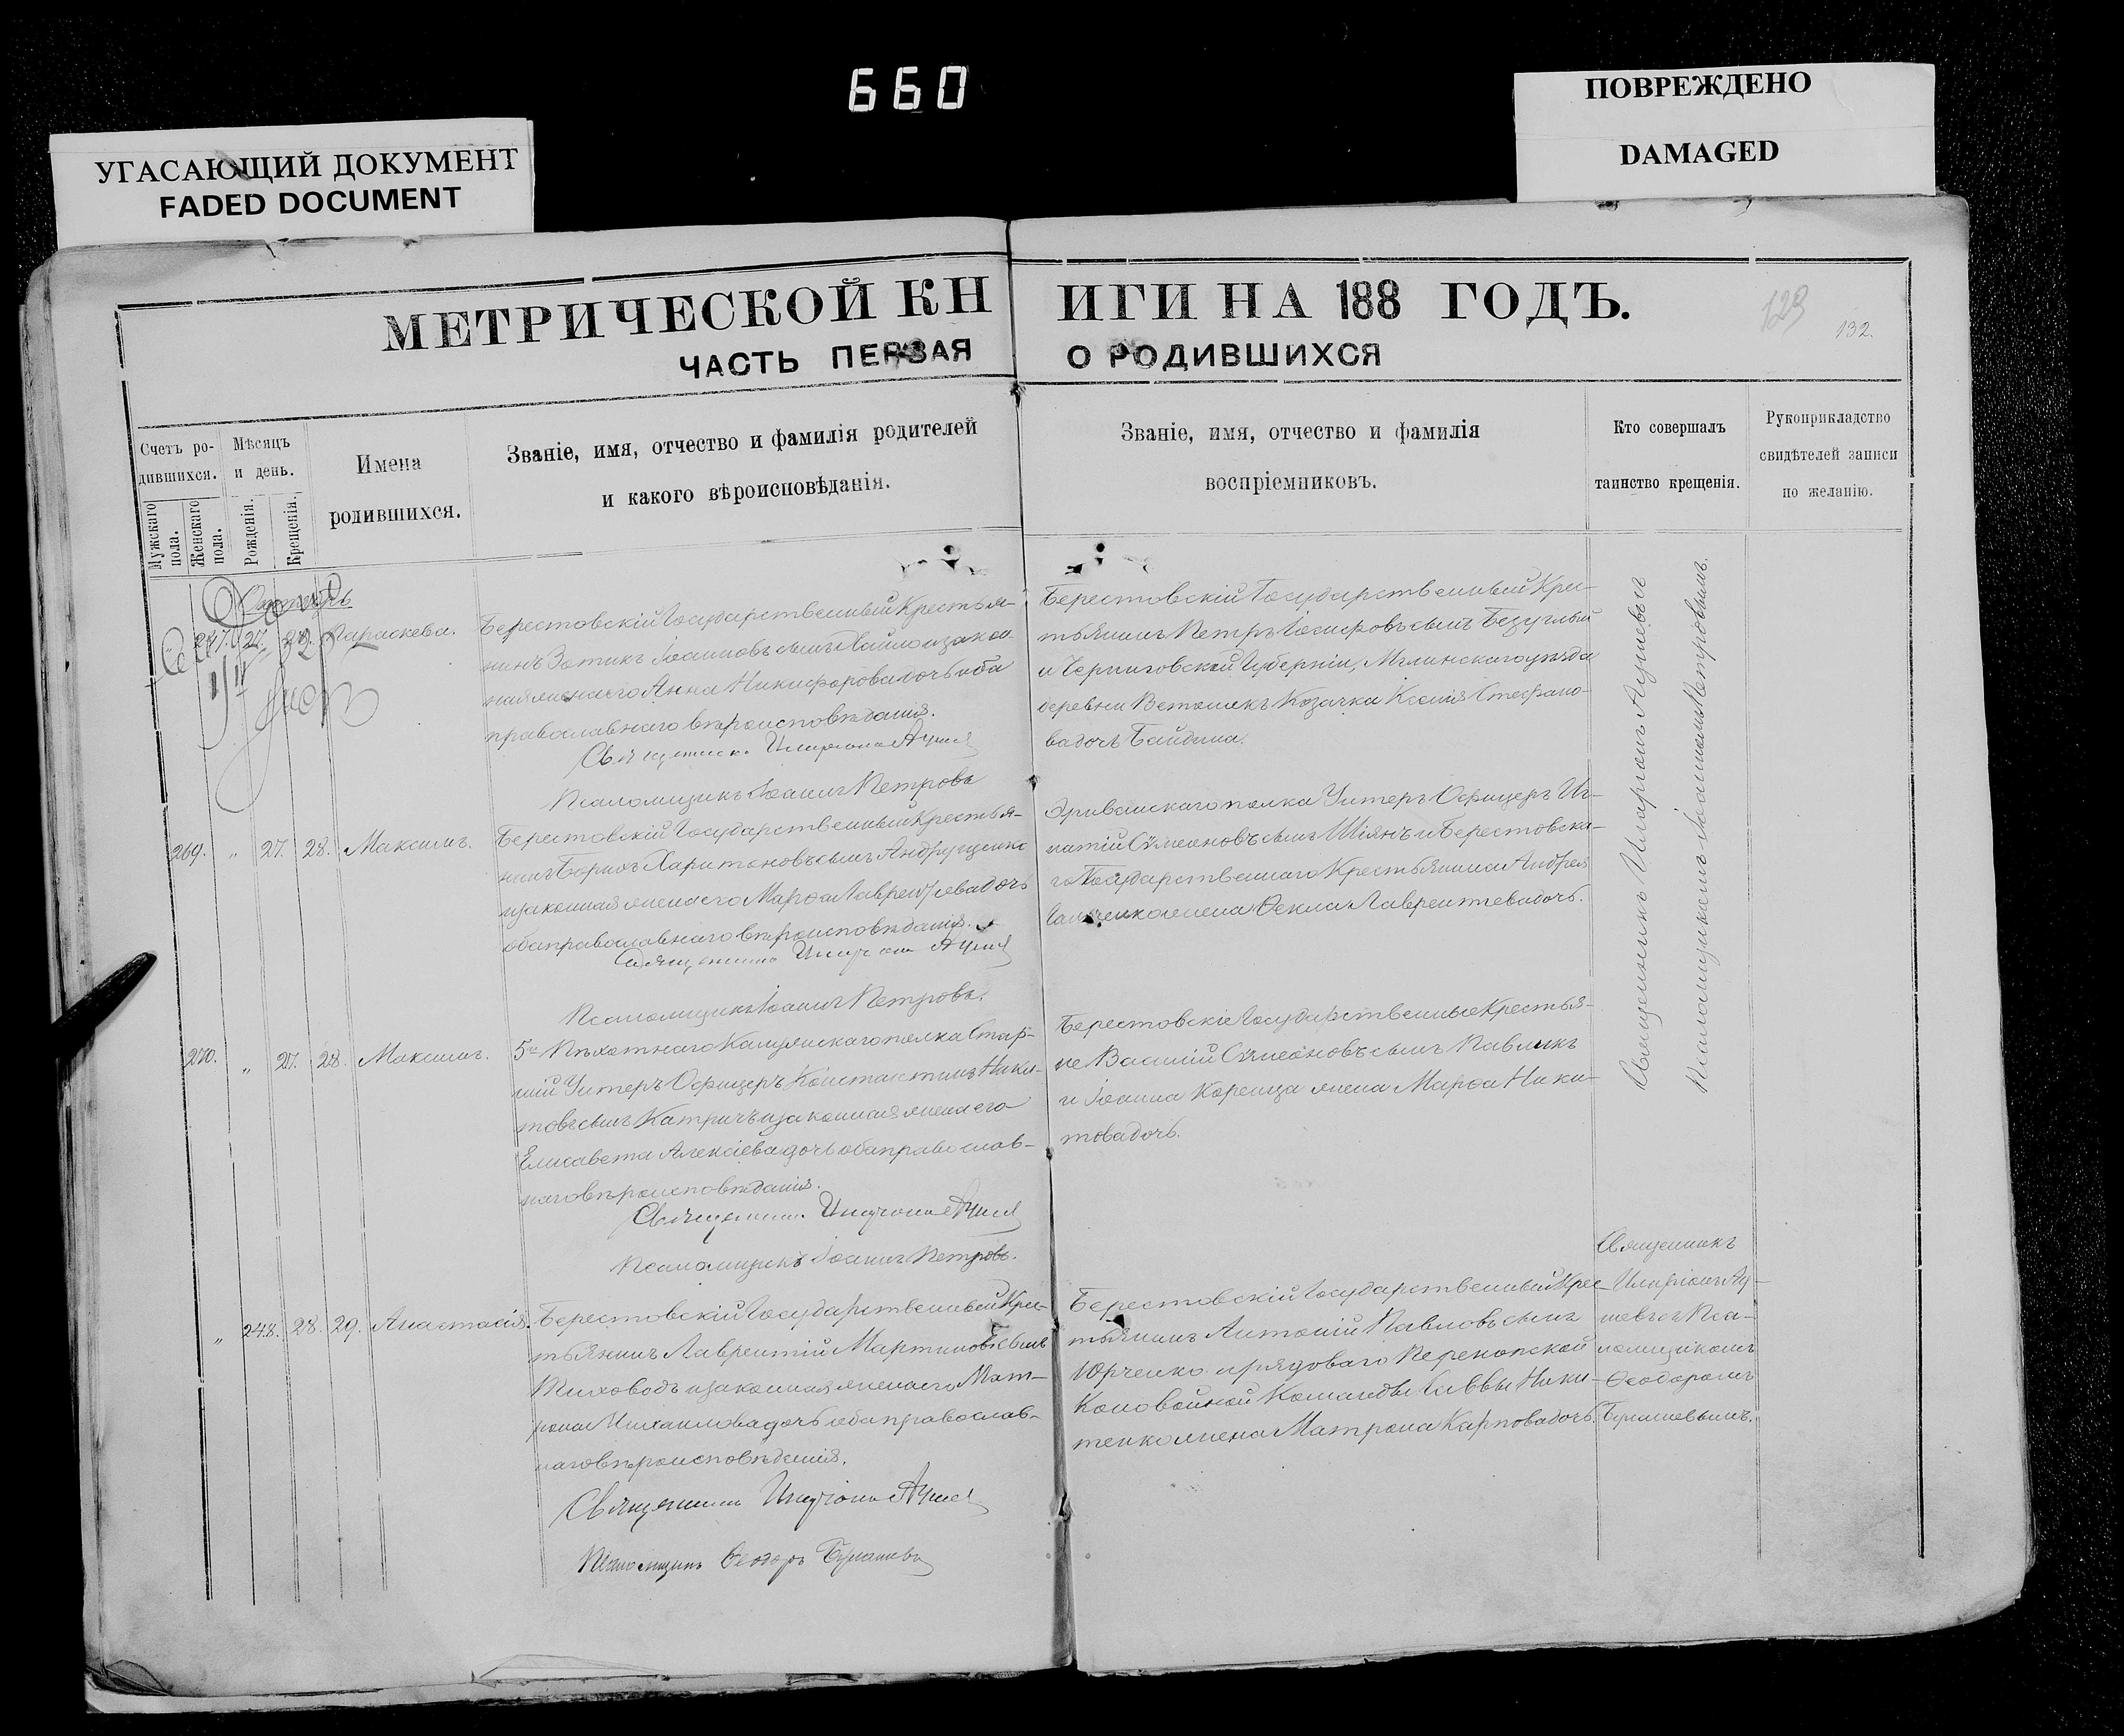 660
УГАСАЮЩИЙ ДОКУМЕНТ
FADED DOCUMENT
ПОВРЕЖДЕНО
DAMAGED
МЕТРИЧЕСКОЙ КНИГИ НА 188 ГОДЪ.
ЧАСТЬ ПЕРВАЯ О РОДИВШИХСЯ
132.
Счетъ ро-
дившихся.
Мужскаго пола.
Женскаго пола.
Мѣсяцъ
и день.
Рожденія.
Крещенія.
Имена
родившихся.
Званіе, имя, отчество и фамилія родителей
и какого вѣроисповѣданія.
Званіе, имя, отчество и фамилія
воспріемниковъ.
Кто совершалъ
таинство крещенія.
Рукоприкладство
свидѣтелей записи
по желанію.
247. 27. Параскева.
Берестовскій Государственный Крестья-
нинъ Зотикъ Іоанновъ сынъ и закон-
ная жена его Анна Никифорова дочь оба
православнаго вѣроисповѣданія.
Священникъ
Псаломщикъ Іоаннъ Петровъ
Берестовскій Государственный Крес-
тьянинъ Петръ Іосифовъ сынъ Безуглый
и Черниговской Губерніи, Мглинскаго уѣзда
деревни Козачка Ксенія Стефано-
ва дочь Байдина.
269. „ 27. 28. Максимъ.
Берестовскій Государственный Крестья-
нинъ Харитоновъ сынъ Андрущенко
и законная жена его Марѳа Лаврентьева дочь
оба православнаго вѣроисповѣданія.
Священникъ
Псаломщикъ Іоаннъ Петровъ.
Эриванскаго полка Унтеръ Офицеръ Иг-
натій Сѵмеоновъ сынъ Шіянъ и Берестовска-
го Государственнаго Крестьянина Андрея
жена Ѳекла Лаврентьева дочь.
270. „ 27. 28. Максимъ.
5го Пѣхотнаго Калужскаго полка Стар-
шій Унтеръ Офицеръ Константинъ Ники-
товъ сынъ Катричъ и законная жена его
Елисавета Алексіева дочь оба православ-
наго вѣроисповѣданія.
Священникъ
Псаломщикъ Іоаннъ Петровъ.
Берестовскіе Государственные Крестья-
не Василій Сѵмеоновъ сынъ Павликъ
и Іоанна Коренца жена Марѳа Ники-
това дочь.
Священникъ Иларіонъ
Псаломщикомъ Іоанномъ Петровымъ.
„ 248. 28. 29. Анастасія.
Берестовскій Государственный Крес-
тьянинъ Лаврентій Мартиновъ сынъ
Тиховодъ и законная жена его Мат-
рона Михаилова дочь оба православ-
наго вѣроисповѣданія.
Священникъ
Псаломщикъ Ѳеодоръ
Берестовскій Государственный Крес-
тьянинъ Антоній Павловъ сынъ
Юрченко и рядоваго Перекопской
Конвойной Команды Саввы Ники-
тенко жена Матрона Карповa дочь.
Священникъ
Иларіонъ
съ Пса-
ломщикомъ
Ѳеодоромъ